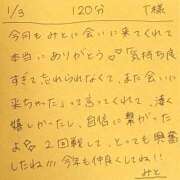 1/3 120分 T様
今回もみとに会いに来てくれて
本当にありがとう♡「気持ち良
すぎて忘れられなくて、また会いに
来ちゃった」って言ってくれて、凄く
嬉しかったし、自信に繋がった
よ 2回戦して、とっても興奮
したね!!! 今年も仲良くしてね!!
みと